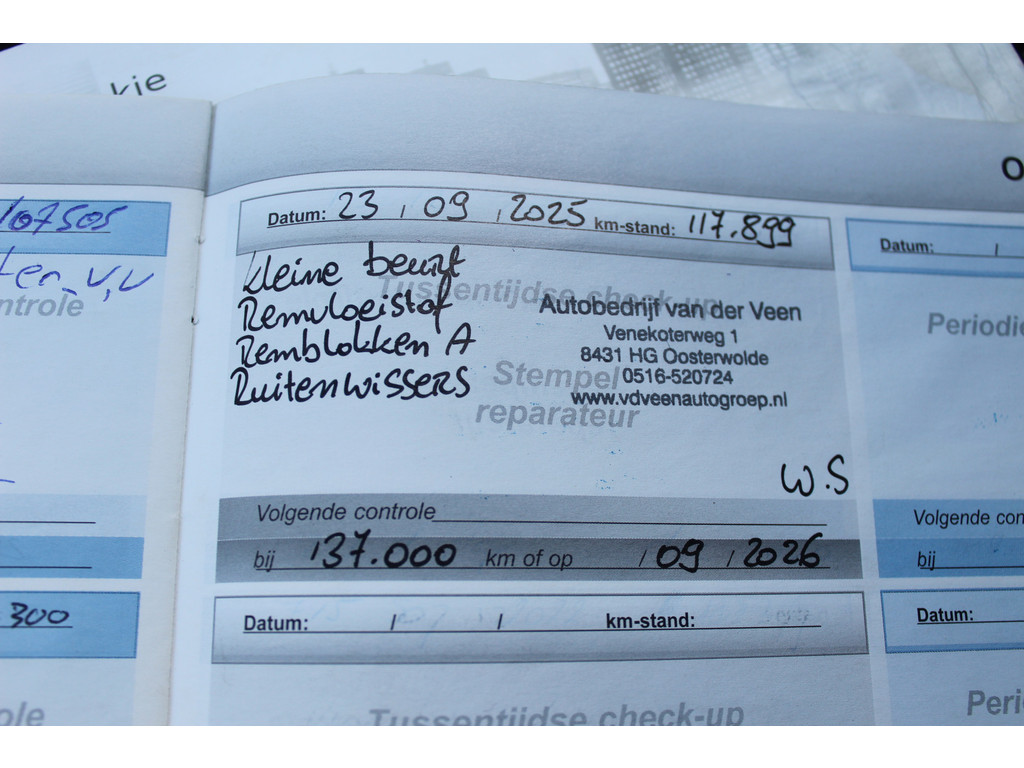 kie
O
107505
ter V,V
ntrole
Datum: 23 / 09 / 2025 km-stand: 117.899
kleine beurt
Tussentijdse check-up
Remvloeistof
Remblokken A
Ruitenwissers
Autobedrijf van der Veen
Venekoterweg 1
8431 HG Oosterwolde
0516-520724
www.vdveenautogroep.nl
Stempel
reparateur
W.S
Volgende controle
bij 137.000 km of op / 09 / 2026
Datum: /
Periodie
Volgende con
bij
300
ole
Datum: / / km-stand:
Tussentijdse check-up
Datum:
Peri